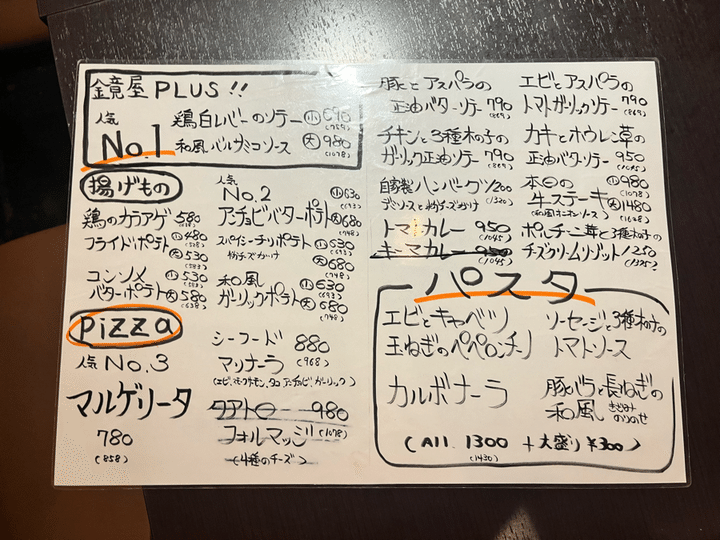 金鏡屋 PLUS!!
人気
No.1
鶏白レバーのソテー 小 690
(759)
和風バルサミコソース 大 980
(1078)
揚げもの
鶏のカラアゲ 580
フライドポテト 小 480
(528)
大 530
(583)
コンソメ 小 530
(583)
バターポテト 大 580
(638)
人気
No.2 小 630
(693)
アンチョビバターポテト 大 680
(748)
スパイシーチリポテト 小 630
(693)
粉チーズがけ 大 680
(748)
和風 小 630
(693)
ガーリックポテト 大 680
(748)
Pizza
人気 No.3
マルゲリータ
780
(858)
シーフード 880
マリナーラ (968)
クアトロ 980
フォルマッジ (1078)
(4種のチーズ)
豚とアスパラの
正油バターソテー 790
(869)
チキンと3種木の子の
ガーリック正油ソテー 790
(869)
自家製ハンバーグ 1200
(1320)
デミソースと粉チーズがけ
トマトカレー 950
(1045)
キーマカレー 950
(1045)
エビとアスパラの
トマトガーリックソテー 790
(869)
カキとホウレン草の
正油バターソテー 950
(1045)
本日の 小 980
(1078)
牛ステーキ 大 1480
(1628)
(和風オニオンソース)
ポルチーニ茸と3種木の子
チーズクリームリゾット 1250
(1375)
パスタ
エビとキャベツ
玉ねぎのペペロンチーノ
ソーセージと3種木の子の
トマトソース
カルボナーラ
豚バラと長ねぎの
和風 きざみのりのせ
(All. 1300 + 大盛り ¥300)
(1430)